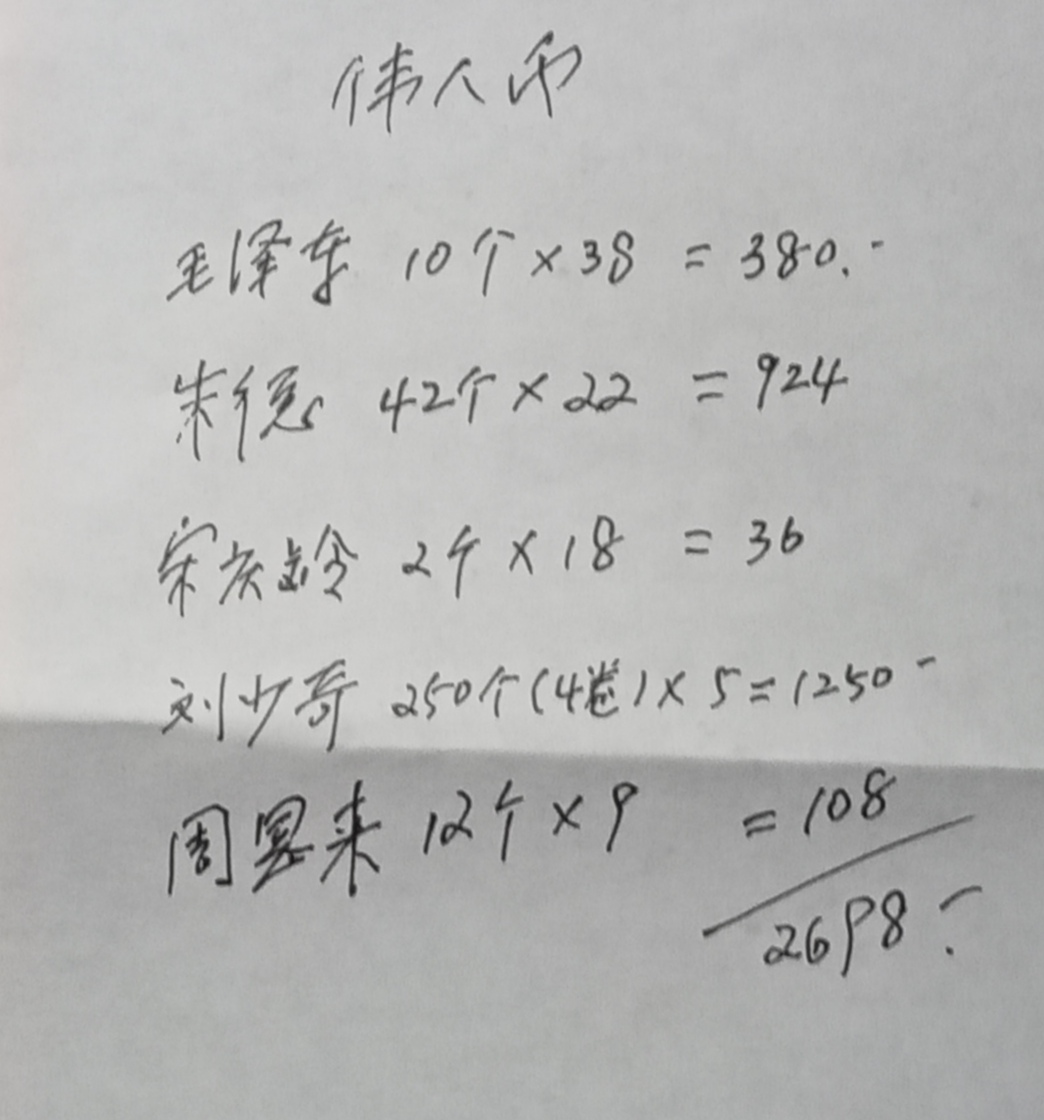 伟人币
毛泽东 10个×38 = 380.-
朱德 42个×22 = 924
宋庆龄 2个×18 = 36
刘少奇 250个(4卷)×5=1250-
周恩来 12个×9 =108
2698.-